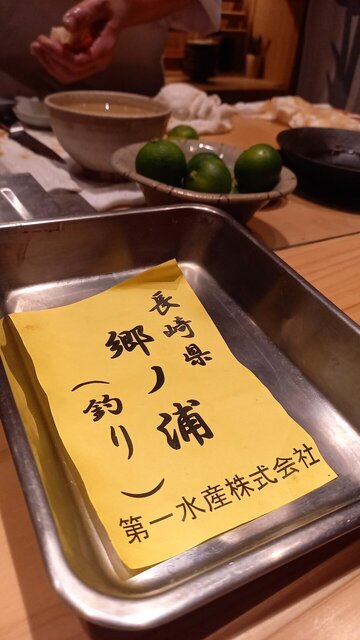 長崎県
郷ノ浦
(釣り)
第一水産株式会社